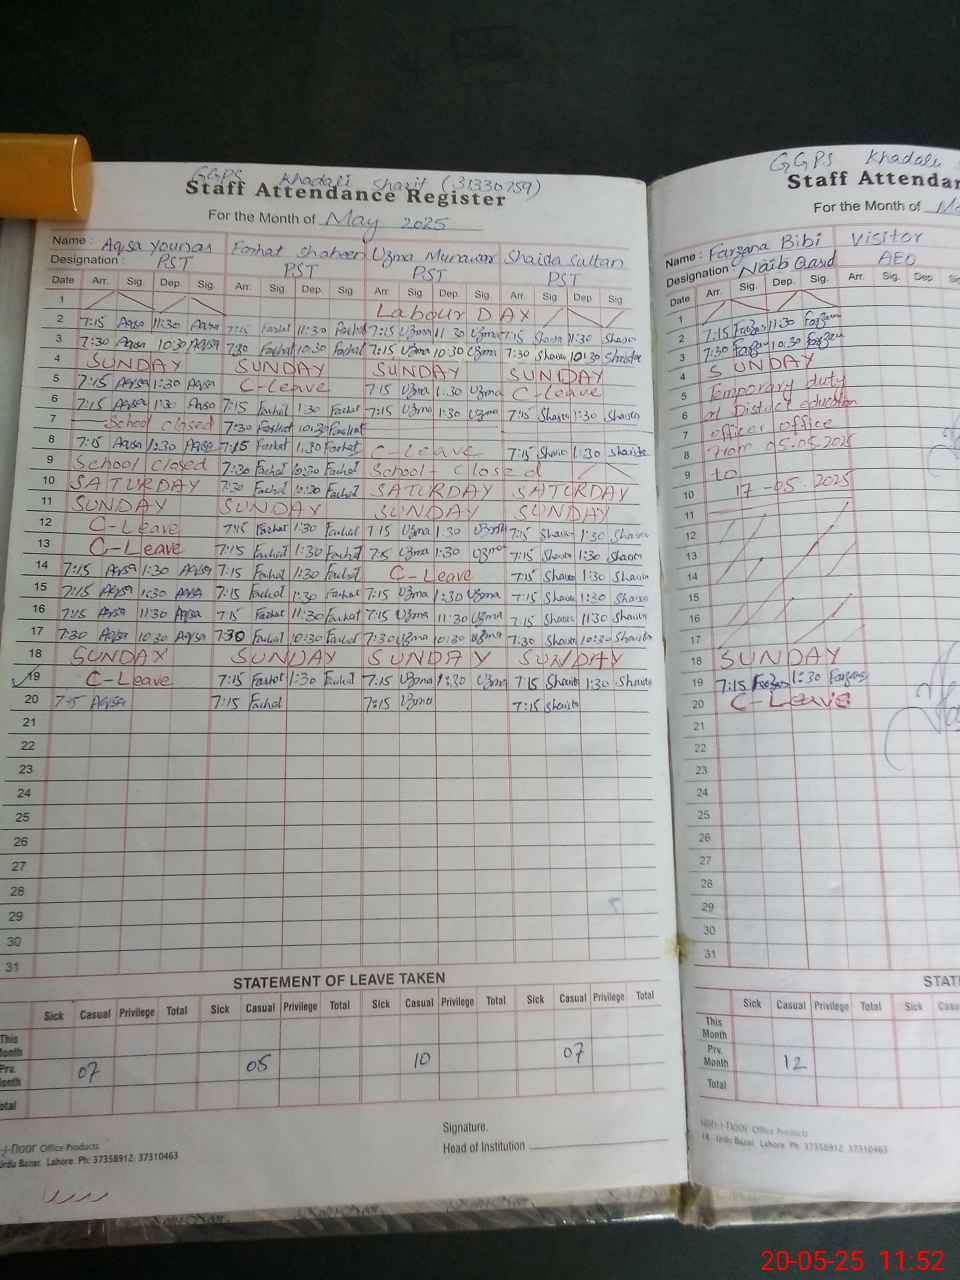 GGPS Khadali Sharif (31330759)
Staff Attendance Register
For the Month of May 2025
Name : Aqsa Younas Farhat Shaheen Uzma Munawar Shaida Sultan
Designation : PST PST PST PST
Date Arr. Sig. Dep. Sig. Arr. Sig. Dep. Sig. Arr. Sig. Dep. Sig. Arr. Sig. Dep. Sig.
1 Labour DAY
2 7:15 Aqsa 11:30 Aqsa 7:15 Farhat 11:30 Farhat 7:15 Uzma 11:30 Uzma 7:15 11:30
3 7:30 Aqsa 10:30 Aqsa 7:30 Farhat 10:30 Farhat 7:15 Uzma 10:30 Uzma 7:30 10:30
4 SUNDAY SUNDAY SUNDAY SUNDAY
5 7:15 Aqsa 1:30 Aqsa C-Leave 7:15 Uzma 1:30 Uzma C-Leave
6 7:15 Aqsa 1:30 Aqsa 7:15 Farhat 1:30 Farhat 7:15 Uzma 1:30 Uzma 7:15 1:30
7 School closed 7:30 Farhat 10:30 Farhat
8 7:15 Aqsa 1:30 Aqsa 7:15 Farhat 1:30 Farhat C-Leave 7:15 1:30
9 School closed 7:30 Farhat 10:30 Farhat School closed
10 SATURDAY 7:30 Farhat 10:30 Farhat SATURDAY SATURDAY
11 SUNDAY SUNDAY SUNDAY SUNDAY
12 C-Leave 7:15 Farhat 1:30 Farhat 7:15 Uzma 1:30 Uzma 7:15 1:30
13 C-Leave 7:15 Farhat 1:30 Farhat 7:15 Uzma 1:30 Uzma 7:15 1:30
14 7:15 Aqsa 1:30 Aqsa 7:15 Farhat 1:30 Farhat C-Leave 7:15 1:30
15 7:15 Aqsa 1:30 Aqsa 7:15 Farhat 1:30 Farhat 7:15 Uzma 1:30 Uzma 7:15 1:30
16 7:15 Aqsa 11:30 Aqsa 7:15 Farhat 11:30 Farhat 7:15 Uzma 11:30 Uzma 7:15 11:30
17 7:30 Aqsa 10:30 Aqsa 7:30 Farhat 10:30 Farhat 7:30 Uzma 10:30 Uzma 7:30 10:30
18 SUNDAY SUNDAY SUNDAY SUNDAY
19 C-Leave 7:15 Farhat 1:30 Farhat 7:15 Uzma 1:30 Uzma 7:15 1:30
20 7:15 Aqsa 7:15 Farhat 7:15 Uzma 7:15
21
22
23
24
25
26
27
28
29
30
31
STATEMENT OF LEAVE TAKEN
Sick Casual Privilege Total Sick Casual Privilege Total Sick Casual Privilege Total Sick Casual Privilege Total
This Month
Prv. Month 07 05 10 07
Total
Signature.
Head of Institution
Office Products
Urdu Bazar. Lahore. Ph: 37358912, 37310463
GGPS Khadali
Staff Attendar
For the Month of
Name : Farzana Bibi Visitor
Designation : Naib Qasid AEO
Date Arr. Sig. Dep. Sig. Arr. Sig. Dep Sig.
1
2 7:15 11:30
3 7:30 10:30
4 SUNDAY
5 Temporary duty
6 at District education
7 officer office
8 From 05.05.2025
9 to
10 17-05.2025
11
12
13
14
15
16
17
18 SUNDAY
19 7:15 1:30
20 C-Leave
21
22
23
24
25
26
27
28
29
30
31
STAT
Sick Casual Privilege Total Sick
This Month
Prv. Month 12
Total
Office Products
Urdu Bazar. Lahore. Ph: 37358912, 37310463
20-05-25 11:52